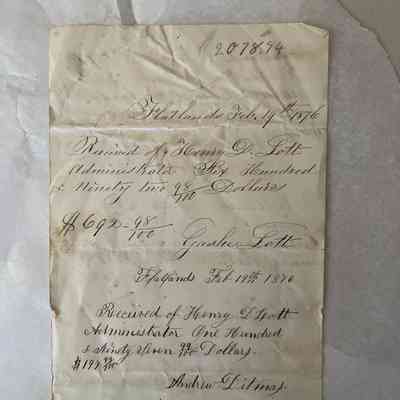 2078.94
Flatlands Feb. 19th 1876
Received of Henry D. Lott
Administrator Six Hundred
& Ninety two 98/100 Dollars
$692 98/100
Lott
Flatlands Feb 19th 1876
Received of Henry D Lott
Administrator One Hundred
& Ninety Seven 99/100 Dollars.
$197 99/100
Andrew Ditmas